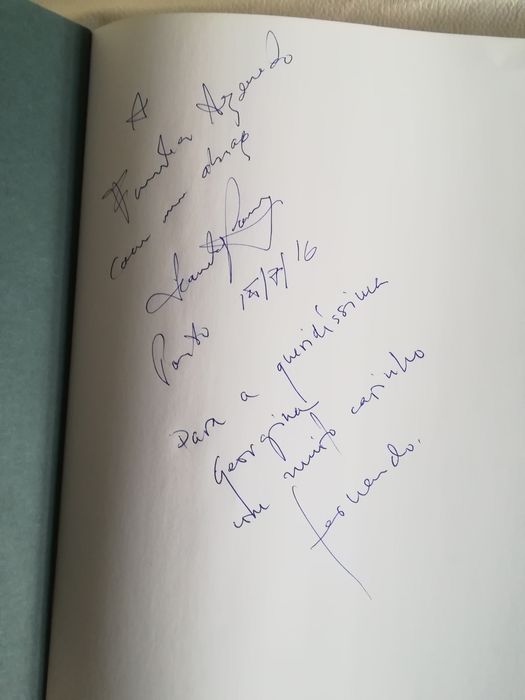 A
Família Azeredo
com um abraço
Porto 15/7/16
Para a queridíssima
Georgina
com muito carinho
Fernando.